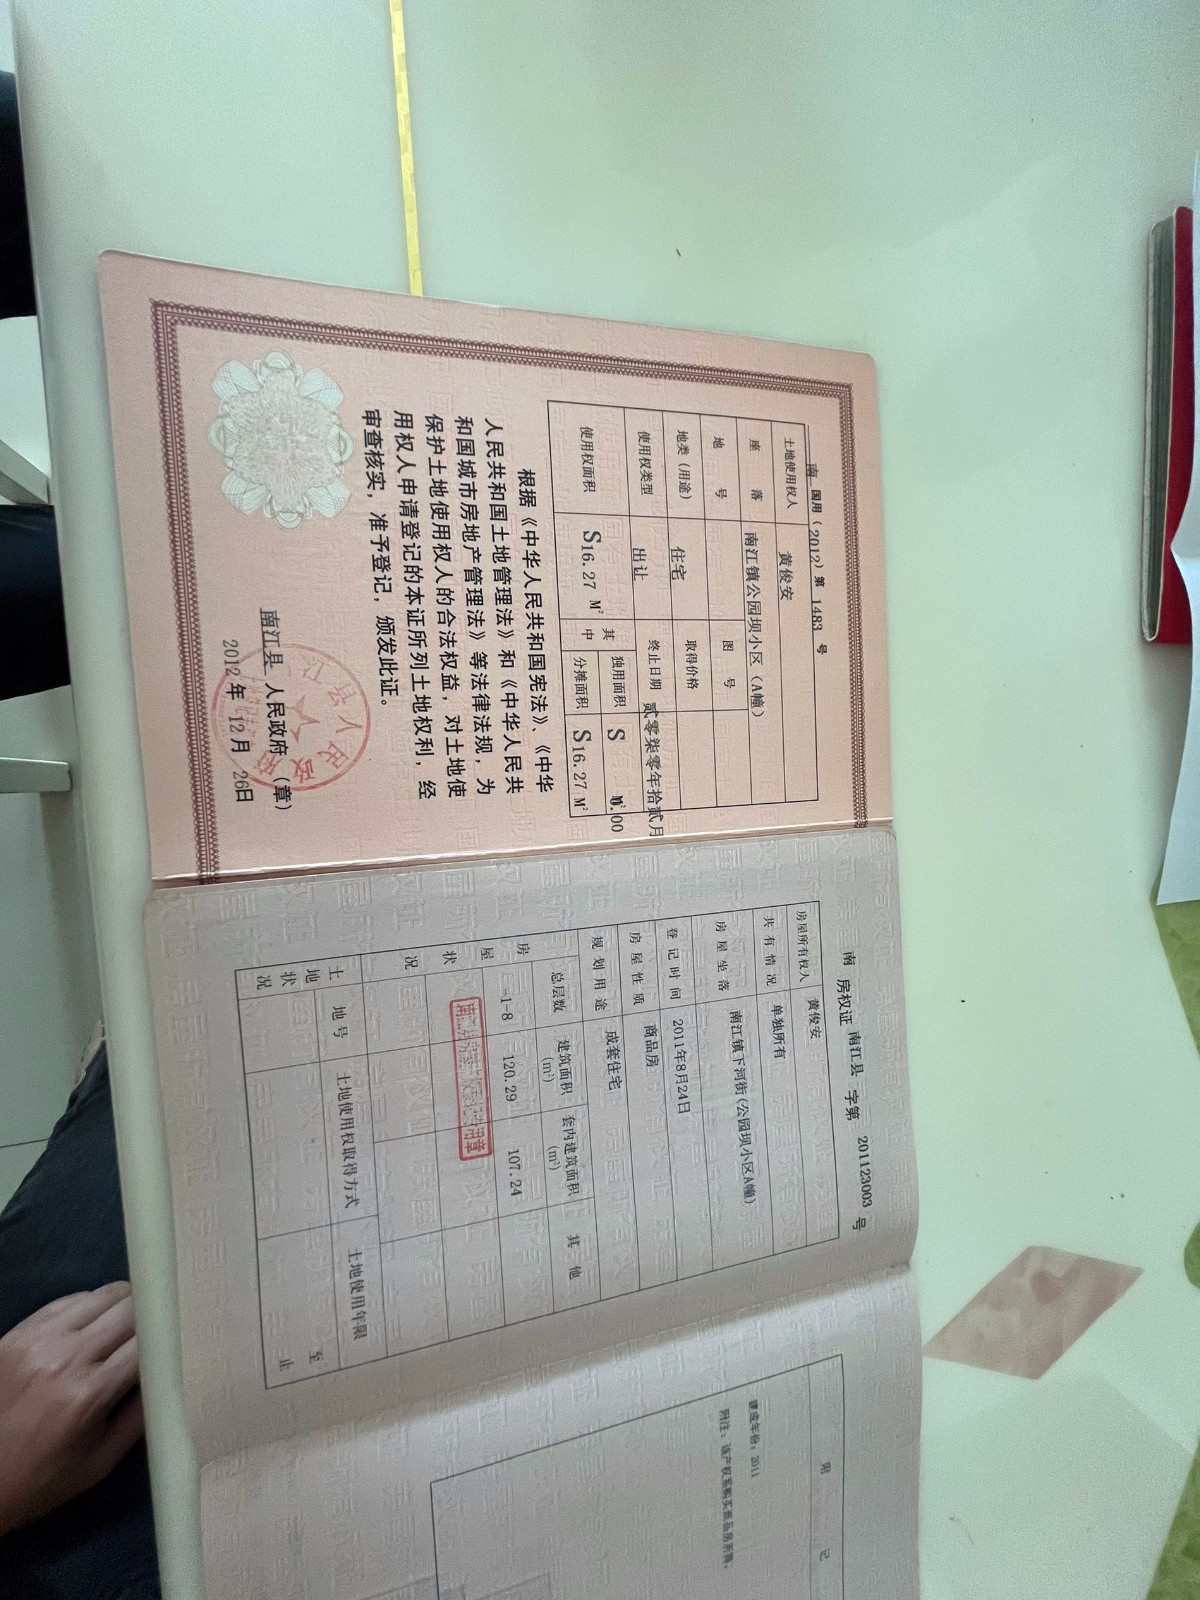 南 国用（2012）第 1483 号
土地使用权人 黄俊安
座落 南江镇公园坝小区（A幢）
地号 图号
地类（用途） 住宅 取得价格
使用权类型 出让 终止日期 贰零柒零年拾贰月
使用权面积 S16.27 M² 其中 独用面积 S 0.00 M²
分摊面积 S16.27 M²
根据《中华人民共和国宪法》、《中华
人民共和国土地管理法》和《中华人民共
和国城市房地产管理法》等法律法规，为
保护土地使用权人的合法权益，对土地使
用权人申请登记的本证所列土地权利，经
审查核实，准予登记，颁发此证。
南江县 人民政府（章）
2012年 12月 26日
南 房权证 南江县 字第 201123003 号
房屋所有权人 黄俊安
共有情况 单独所有
房屋坐落 南江镇下河街(公园坝小区A幢)
登记时间 2011年8月24日
房屋性质 商品房
规划用途 成套住宅
房屋状况 总层数 建筑面积(m²) 套内建筑面积(m²) 其他
-1-8 120.29 107.24
土地状况 地号 土地使用权取得方式 土地使用年限
至
止
附记
建成年份：2011
附注：该产权系购买商品房所得。